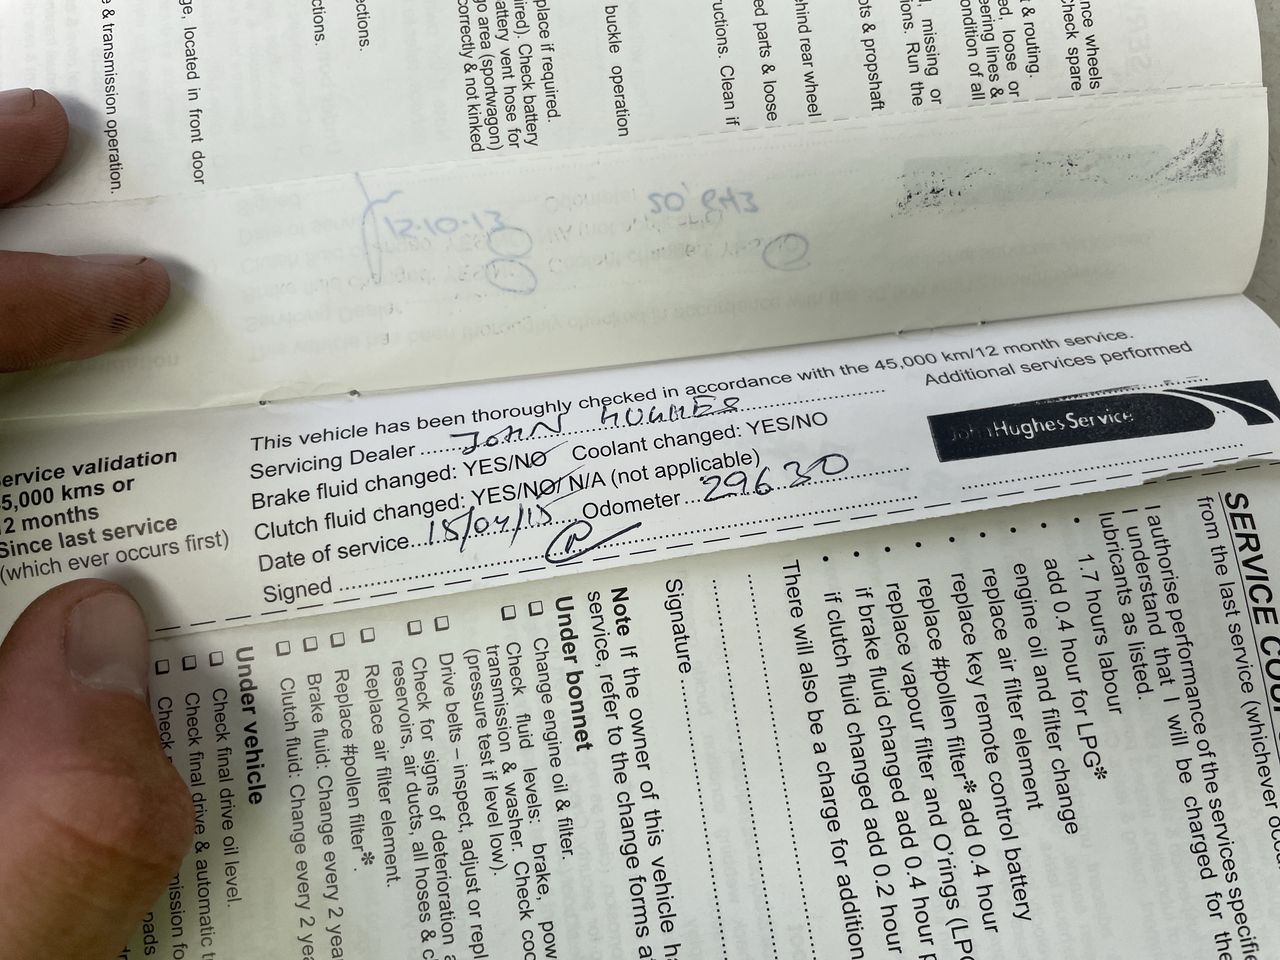 place if required.
ired). Check battery
attery vent hose for
go area (sportwagon)
correctly & not kinked
buckle operation
uctions. Clean if
ed parts & loose
hind rear wheel
ots & propshaft
missing or
ions. Run the
& routing.
ed, loose or
eering lines &
ondition of all
nce wheels
check spare
ctions.
ections.
ge, located in front door
e & transmission operation.
12-10-13
ervice validation
5,000 kms or
2 months
Since last service
(which ever occurs first)
This vehicle has been thoroughly checked in accordance with the 45,000 km/12 month service.
Servicing Dealer JOHN HUGHES
Additional services performed
Brake fluid changed: YES/NO Coolant changed: YES/NO
Clutch fluid changed: YES/NO/ N/A (not applicable)
Date of service Odometer 29630
Signed
John Hughes Service
SERVICE COU
from the last service (whichever occu
I authorise performance of the services specifie
I understand that I will be charged for the
lubricants as listed.
• 1.7 hours labour
• add 0.4 hour for LPG*
• engine oil and filter change
• replace air filter element
• replace key remote control battery
• replace #pollen filter* add 0.4 hour
• replace vapour filter and O'rings (LPG
• if brake fluid changed add 0.4 hour p
• if clutch fluid changed add 0.2 hour
There will also be a charge for addition
Signature
Note If the owner of this vehicle ha
service, refer to the change forms a
Under bonnet
❑ Change engine oil & filter.
❑ Check fluid levels: brake, pow
transmission & washer. Check coo
(pressure test if level low).
❑ Drive belts – inspect, adjust or repl
❑ Check for signs of deterioration a
reservoirs, air ducts, all hoses & c
❑ Replace air filter element.
❑ Replace #pollen filter*.
❑ Brake fluid: Change every 2 yea
❑ Clutch fluid: Change every 2 yea
Under vehicle
❑ Check final drive oil level.
❑ Check final drive & automatic t
❑ Check
mission fo
pads